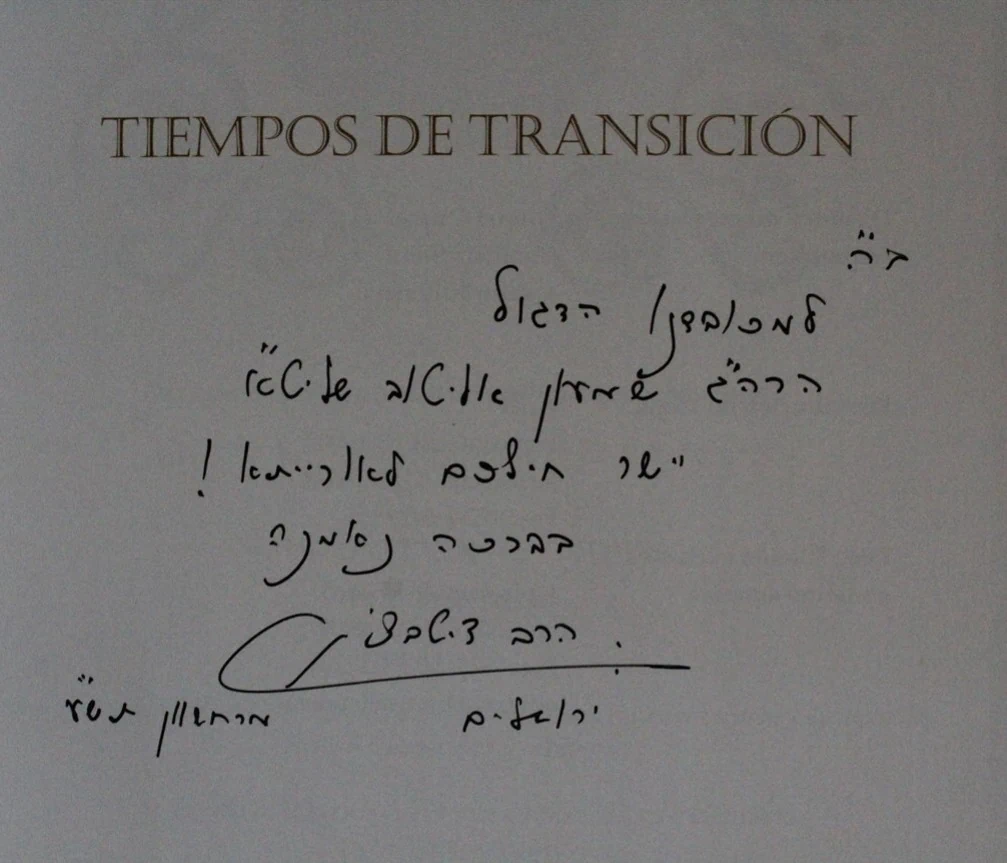 TIEMPOS DE TRANSICIÓN
ב"ה
למכובדנו הדגול
הרה"ג שמעון אליטוב שליט"א
יישר חילכם לאורייתא!
בברכה נאמנה
הרב
ירושלים מרחשון